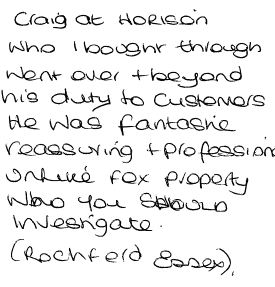 Craig at HORISON
who I bought through
Went over + beyond
his duty to Customers
He was fantastic
reassuring + profession
unlike fox property
Who you Should
Investigate.
(Rochford Essex).